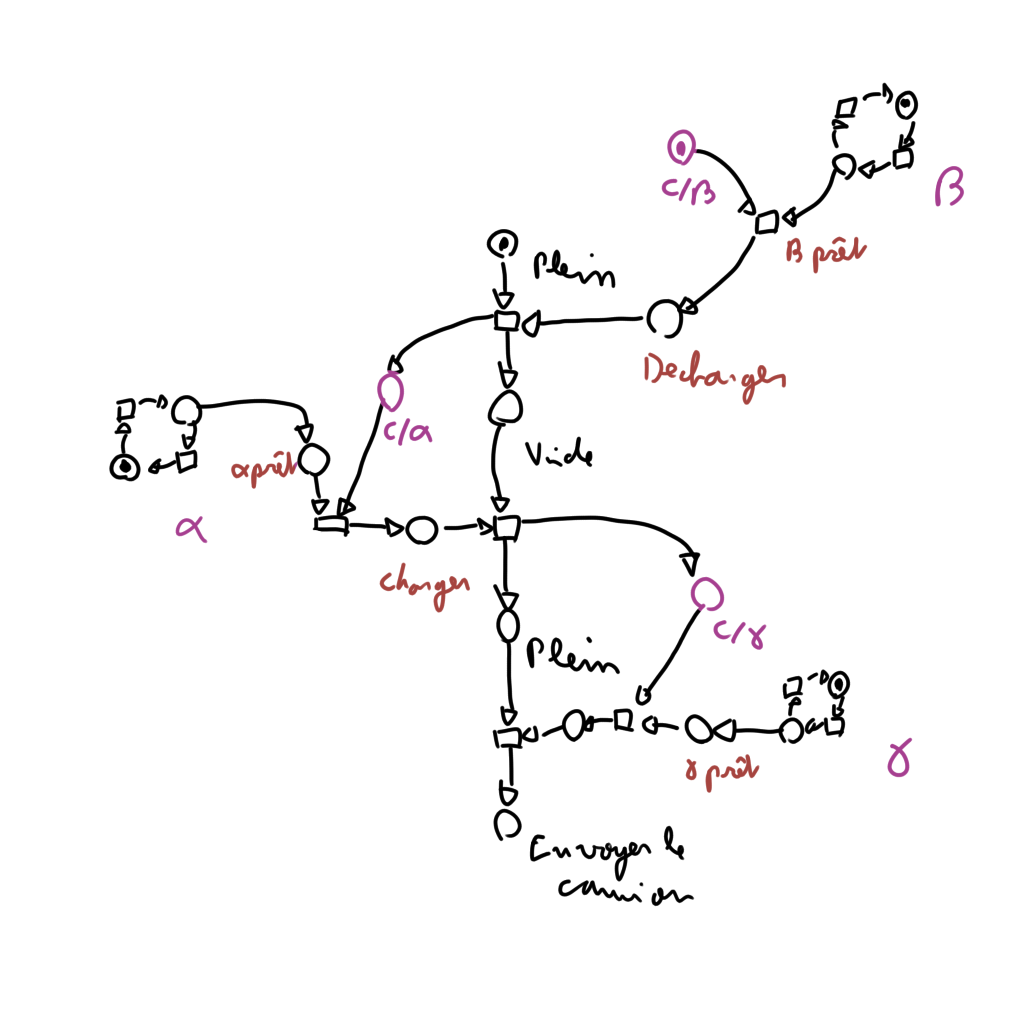 β
c/β
B prêt
Plein
Decharger
c/α
Vide
α prêt
α
charger
c/γ
Plein
γ prêt
γ
Envoyer le
camion